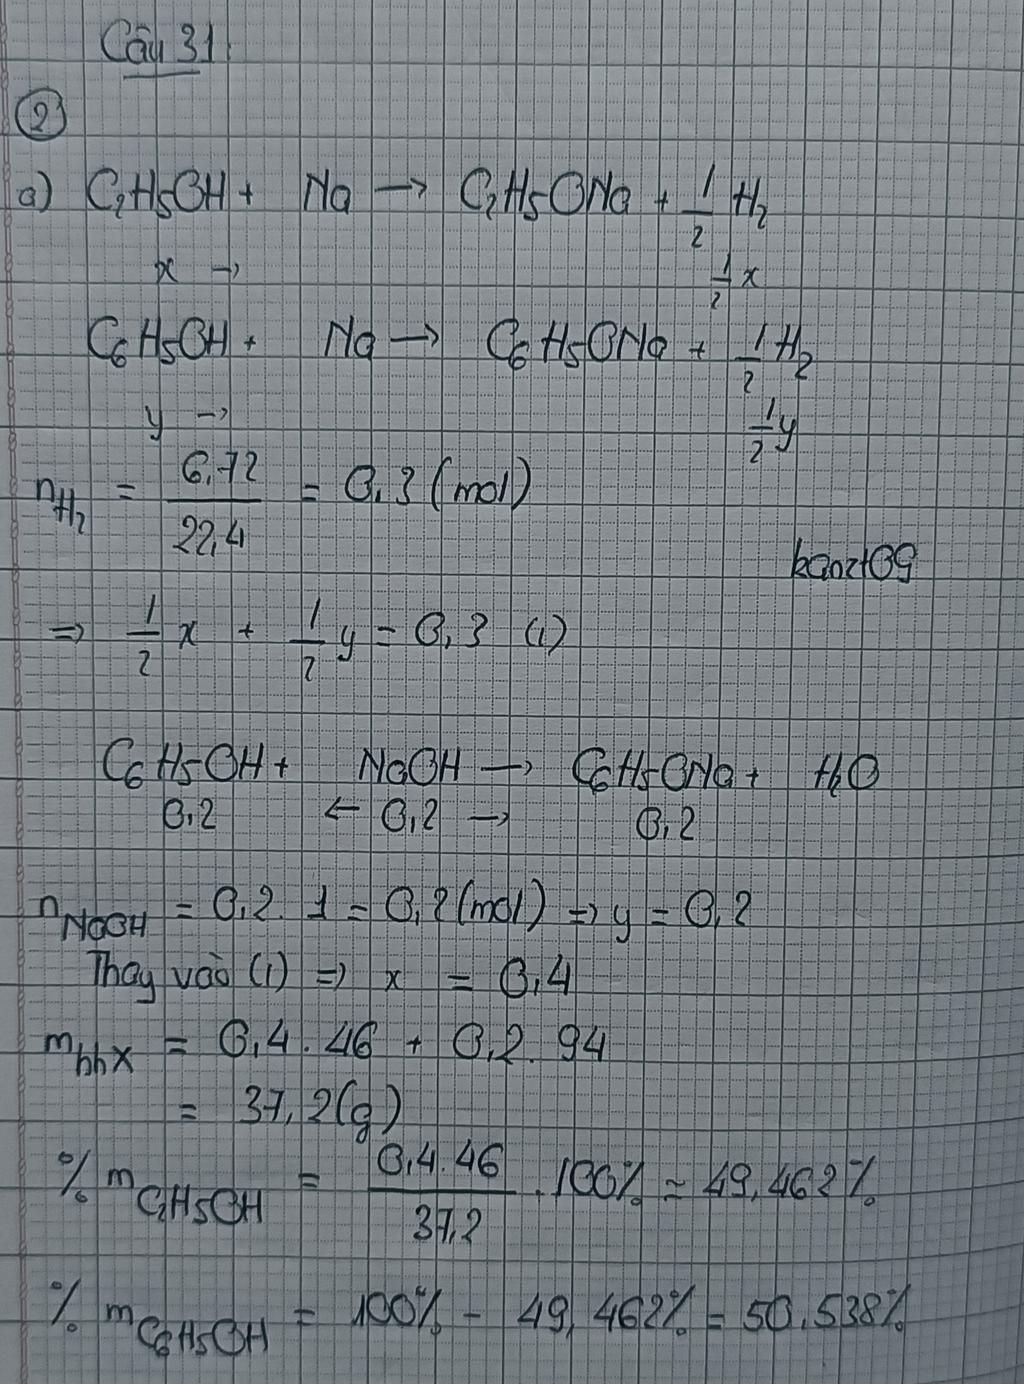 Câu 31:
②
a) C₂H₅OH + Na → C₂H₅ONa + 1/2 H₂
x → 1/2 x
C₆H₅OH + Na → C₆H₅ONa + 1/2 H₂
y → 1/2 y
nH₂ = 6,72/22,4 = 0,3 (mol)
kanzt09
⇒ 1/2 x + 1/2 y = 0,3 (1)
C₆H₅OH + NaOH → C₆H₅ONa + H₂O
0,2 ← 0,2 → 0,2
nNaOH = 0,2 . 1 = 0,2 (mol) ⇒ y = 0,2
Thay vào (1) ⇒ x = 0,4
mhhX = 0,4 . 46 + 0,2 . 94
= 37,2 (g)
% mC₂H₅OH = 0,4 . 46/37,2 . 100% = 49,462%
% mC₆H₅OH = 100% - 49,462% = 50,538%